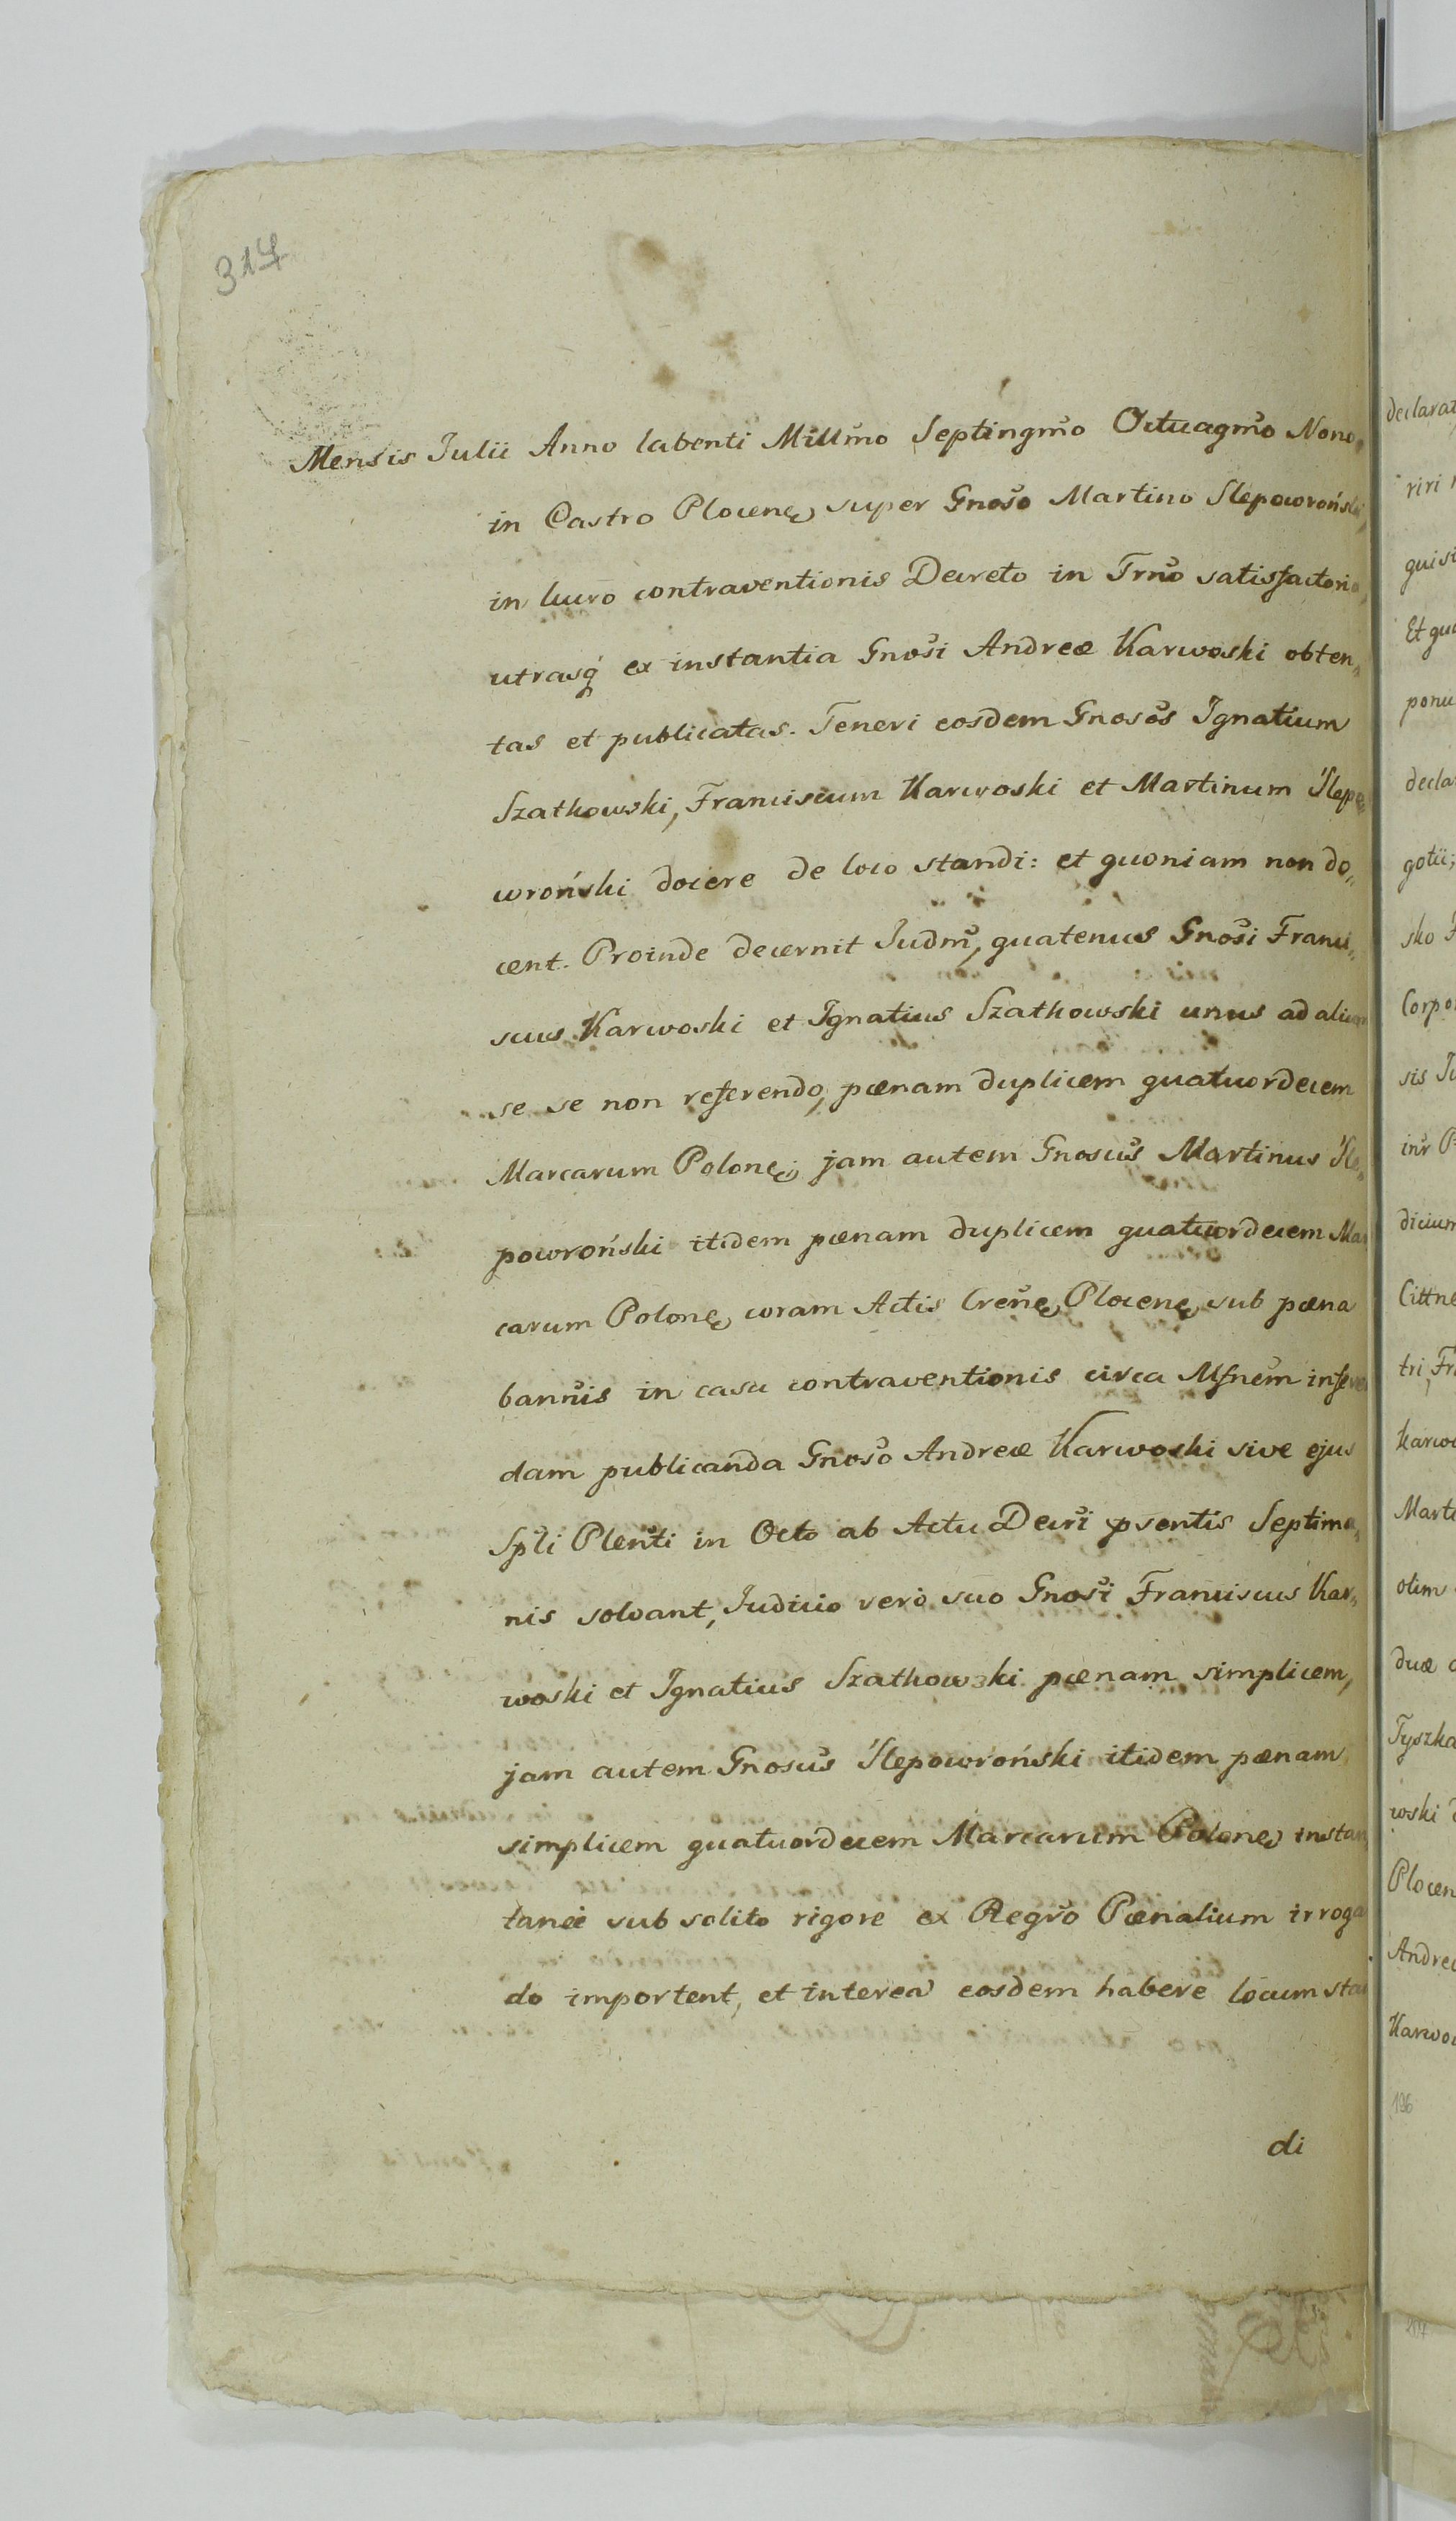 314
Mensis Julii Anno labenti Millm̃o Septingm̃o Octuagm̃o Nono,
in Castro Plocenę, super Gnoso Martino Slepowroński,
in lucro contraventionis Decreto in Trño satisfactorio,
utrasq́ ex instantia Gnosi Andreæ Karwoski obten„
tas et publicatas. Teneri eosdem Gnosos Ignatium
Szatkowski, Franciscum Karwoski et Martinum Ślepo„
wroński docere de loco standi: et quoniam non do„
cent. Proinde decernit Judm̃, quatenus Gnosi Franci„
scus Karwoski et Ignatius Szatkowski unus ad alium
se se non referendo, pœnam duplicem quatuordecem
Marcarum Polonę; jam autem Gnosus Martinus Śle„
powroński itidem pœnam duplicem quatuordecem Mar
carum Polonę, coram Actis Creñę, Plocenę, sub pœna
bannis in casu contraventionis circa Mſnem inferen
dam publicanda Gnoso Andreæ Karwoski sive ejus
Spli Plenti in Octo ab Actu Decri psentis Septima„
nis solvant, Judicio vero suo Gnosi Franciscus Kar„
woski et Ignatius Szatkowski pœnam simplicem,
jam autem Gnosus Ślepowroński itidem pœnam
simplicem quatuordecem Marcarum Polonę, instan
tanee sub solito rigore ex Regro Pœnalium irrogan
do importent, et interea eosdem habere locum stan
di
declarat
riri
quisi
Et quo
ponu
decla
gotii;
sko F
Corpo
sis Ju
inr P
dicium
Cittne
tri, Fr
Karwo
Marti
olim
duæ
Tyszka
woski
Plocen
Andreæ
Karwo
196